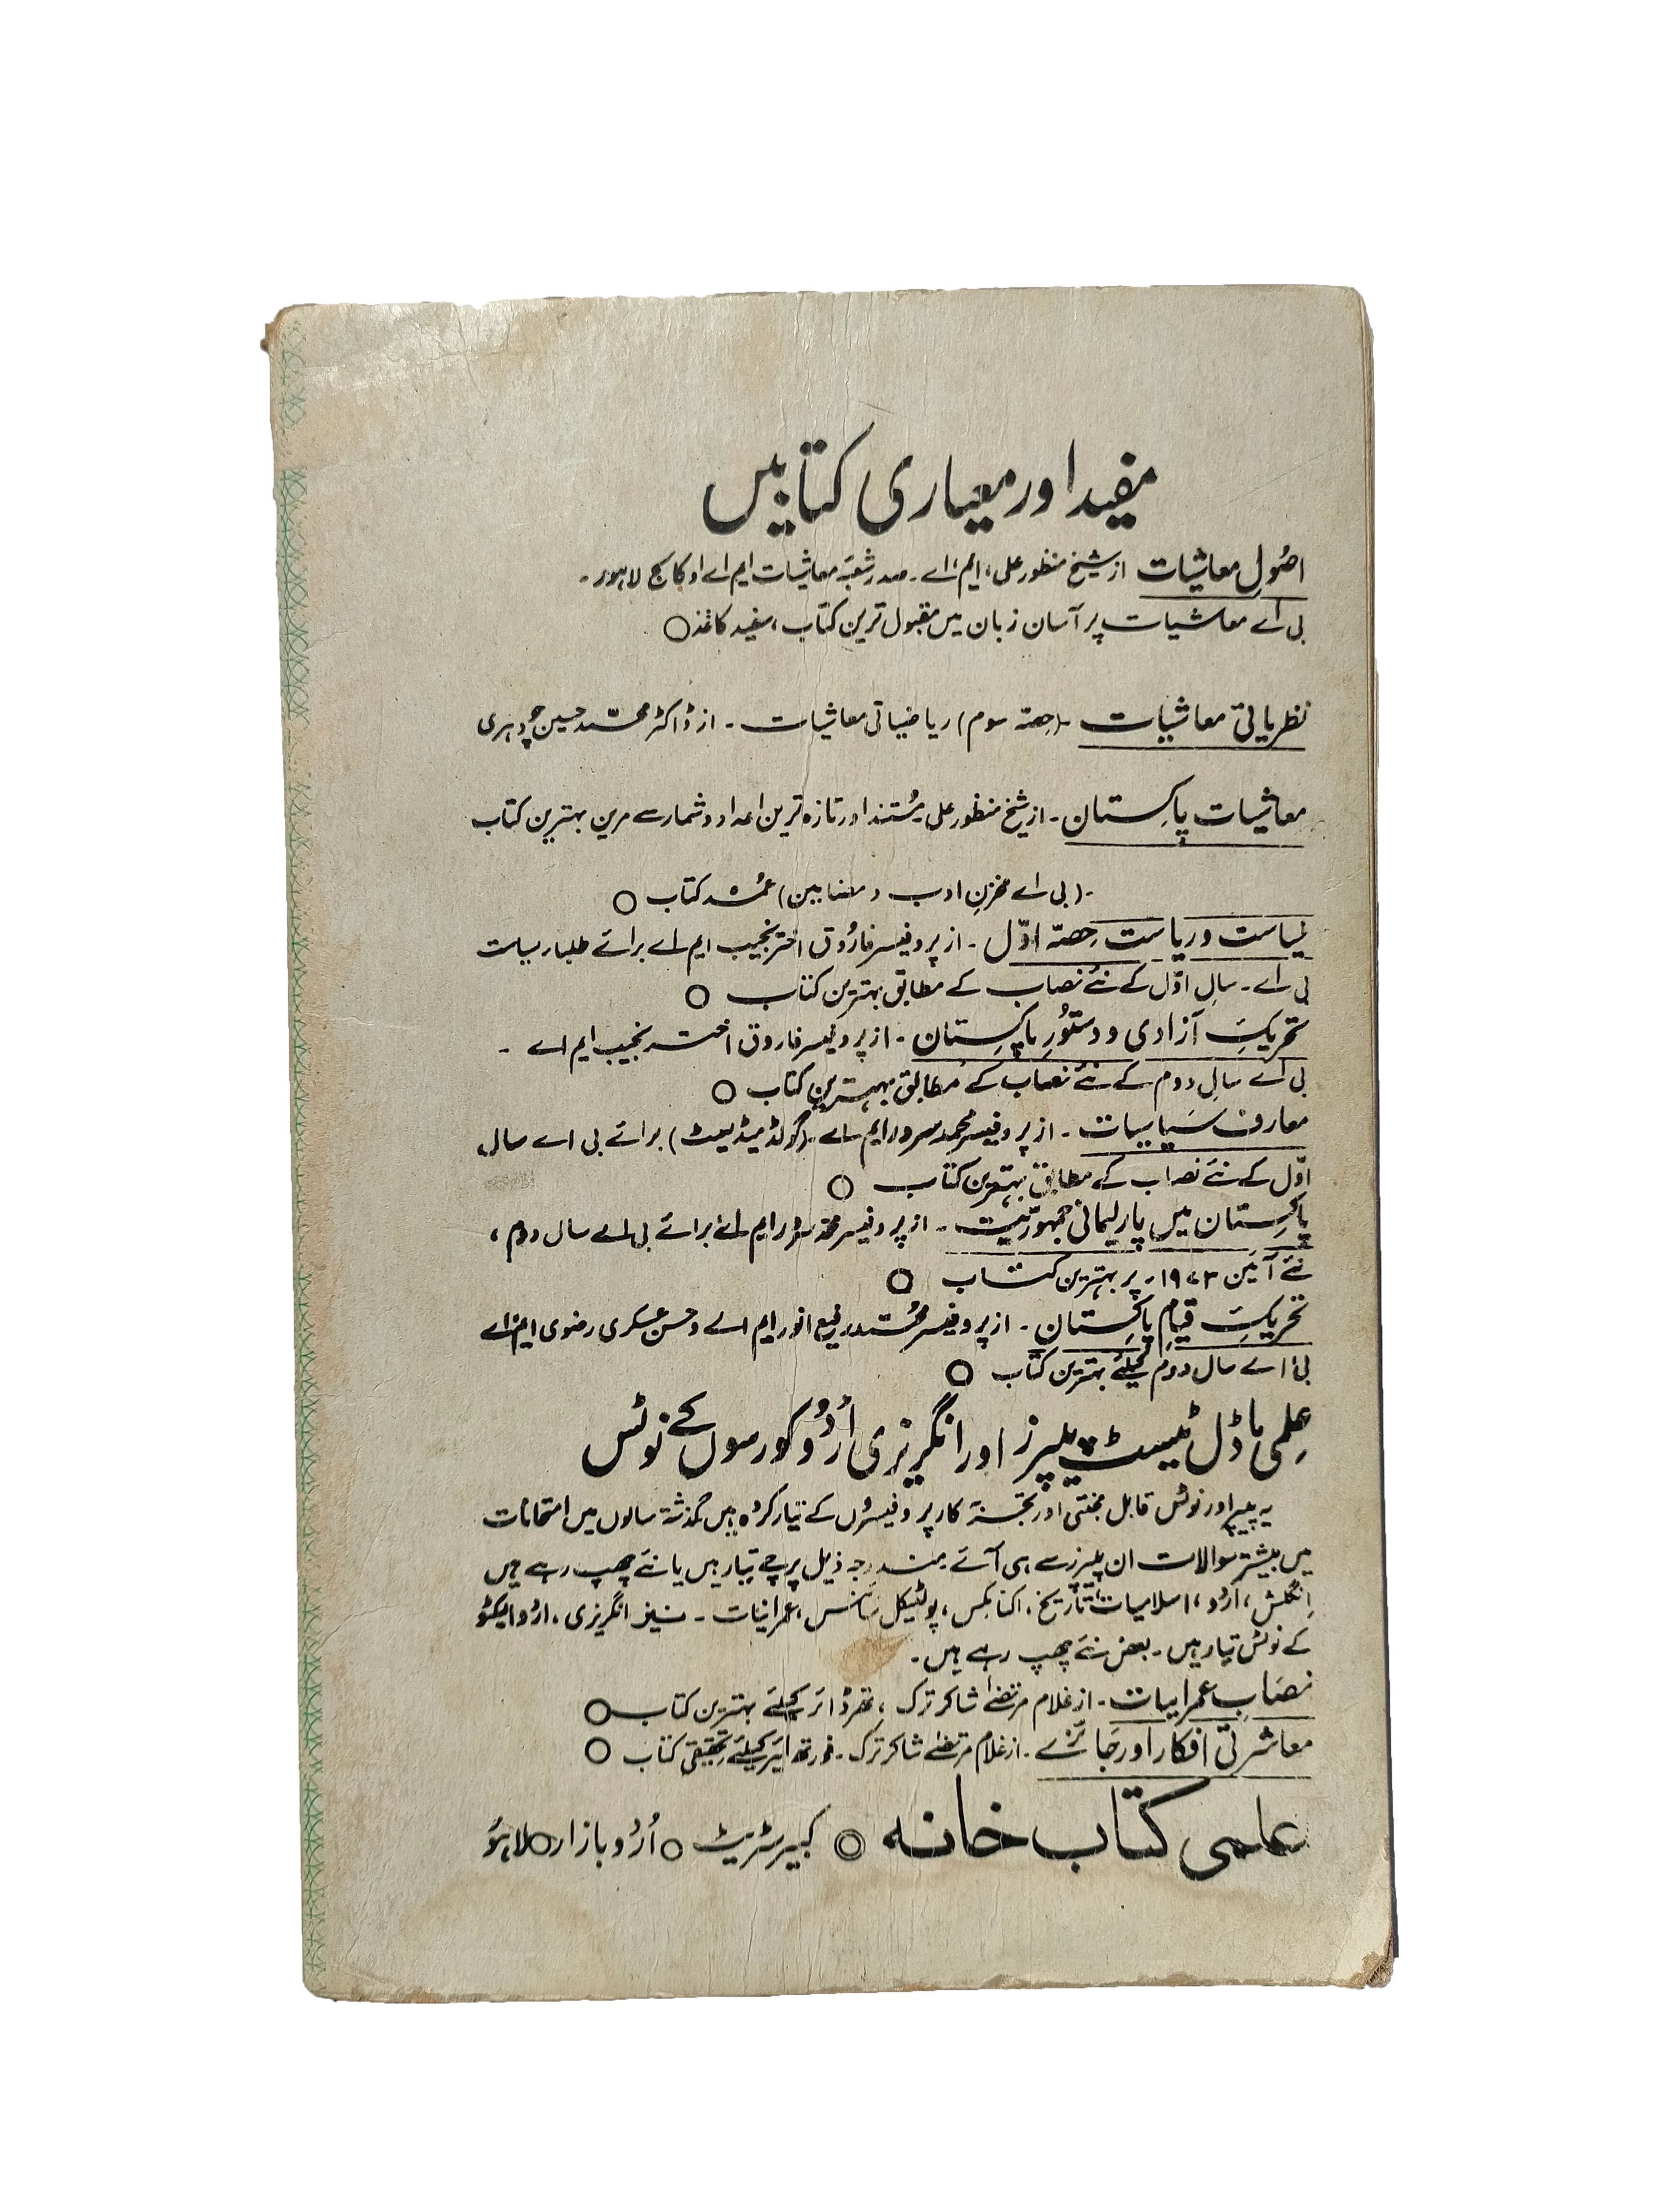 مفید اور معیاری کتابیں
اصُولِ معاشیات از شیخ منظور علی، ایم۔اے۔ صدر شعبۂ معاشیات ایم اے او کالج لاہور۔
بی اے معاشیات پر آسان زبان میں مقبول ترین کتاب، سفید کاغذ ○
نظریاتی معاشیات -(حصّہ سوم) ریاضیاتی معاشیات - از ڈاکٹر محمّد حسین چودہری
معاشیات پاکستان - از شیخ منظور علی مُستند اور تازہ ترین اعداد و شمار سے مزین بہترین کتاب
-(بی اے مخزنِ ادب و مضامین) عمُدہ کتاب ○
سیاست و ریاست حِصّہ اوّل - از پروفیسر فارُوق اختر نجیب ایم اے برائے طلباء سیاست
بی اے - سالِ اوّل کے نئے نصاب کے مطابق بہترین کتاب ○
تحریکِ آزادی و دستُورِ پاکستان - از پروفیسر فاروق اختر نجیب ایم اے -
بی اے سالِ دوم کے نئے نصاب کے مطابق بہترین کتاب ○
معارف سَیاسیات - از پروفیسر محمد سرور ایم اے -(گولڈ میڈلسٹ) برائے بی اے سال
اوّل کے نئے نصاب کے مطابق بہترین کتاب ○
پاکستان میں پارلیمانی جمہوریّت - از پروفیسر محمّد سرور ایم اے برائے بی اے سال دوم،
نئے آئین ۱۹۷۳ء پر بہترین کتاب ○
تحریکِ قیامِ پاکستان - از پروفیسر محمّد رفیع انور ایم اے و حسن عسکری رضوی ایم اے
بی اے سال دوم کیلئے بہترین کتاب ○
عِلمی ماڈل ٹیسٹ پیپرز اور انگریزی اُردُو کورسوں کے نوٹس
یہ پیپر اور نوٹس قابل محنتی اور تجربہ کار پروفیسروں کے تیار کردہ ہیں گذشتہ سالوں میں امتحانات
میں بیشتر سوالات ان پیپرز سے ہی آئے۔ مندرجہ ذیل پرچے تیار ہیں یا نئے چھپ رہے ہیں
اِنگلش، اُردُو، اسلامیات، تاریخ، اکنامکس، پولٹیکل سَائنس، عمرانیات - نیز انگریزی، اردو ایکٹو
کے نوٹس تیار ہیں - بعض نئے چھپ رہے ہیں۔
نصَاب عمرانیات - از غلام مرتضےٰ شاکر ترک، تھرڈ ائر کیلئے بہترین کتاب ○
معاشرتی افکار اور جَائزے - از غلام مرتضےٰ شاکر ترک - فورتھ ایئر کیلئے تحقیقی کتاب ○
علمی کتاب خانہ ◎ کبیر سٹریٹ ○ اُردُو بازار ○ لاہور